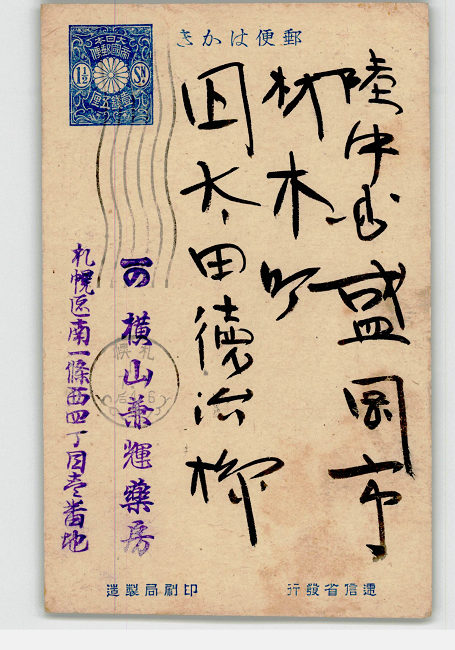 郵便はがき
大日本
帝國郵便
1½ Sn
壹錢五厘
陸中国盛岡市
材木町
太田徳治様
一の 横山兼輝藥房
札幌区南一條西四丁目壱番地
札幌
遞信省發行
印刷局製造